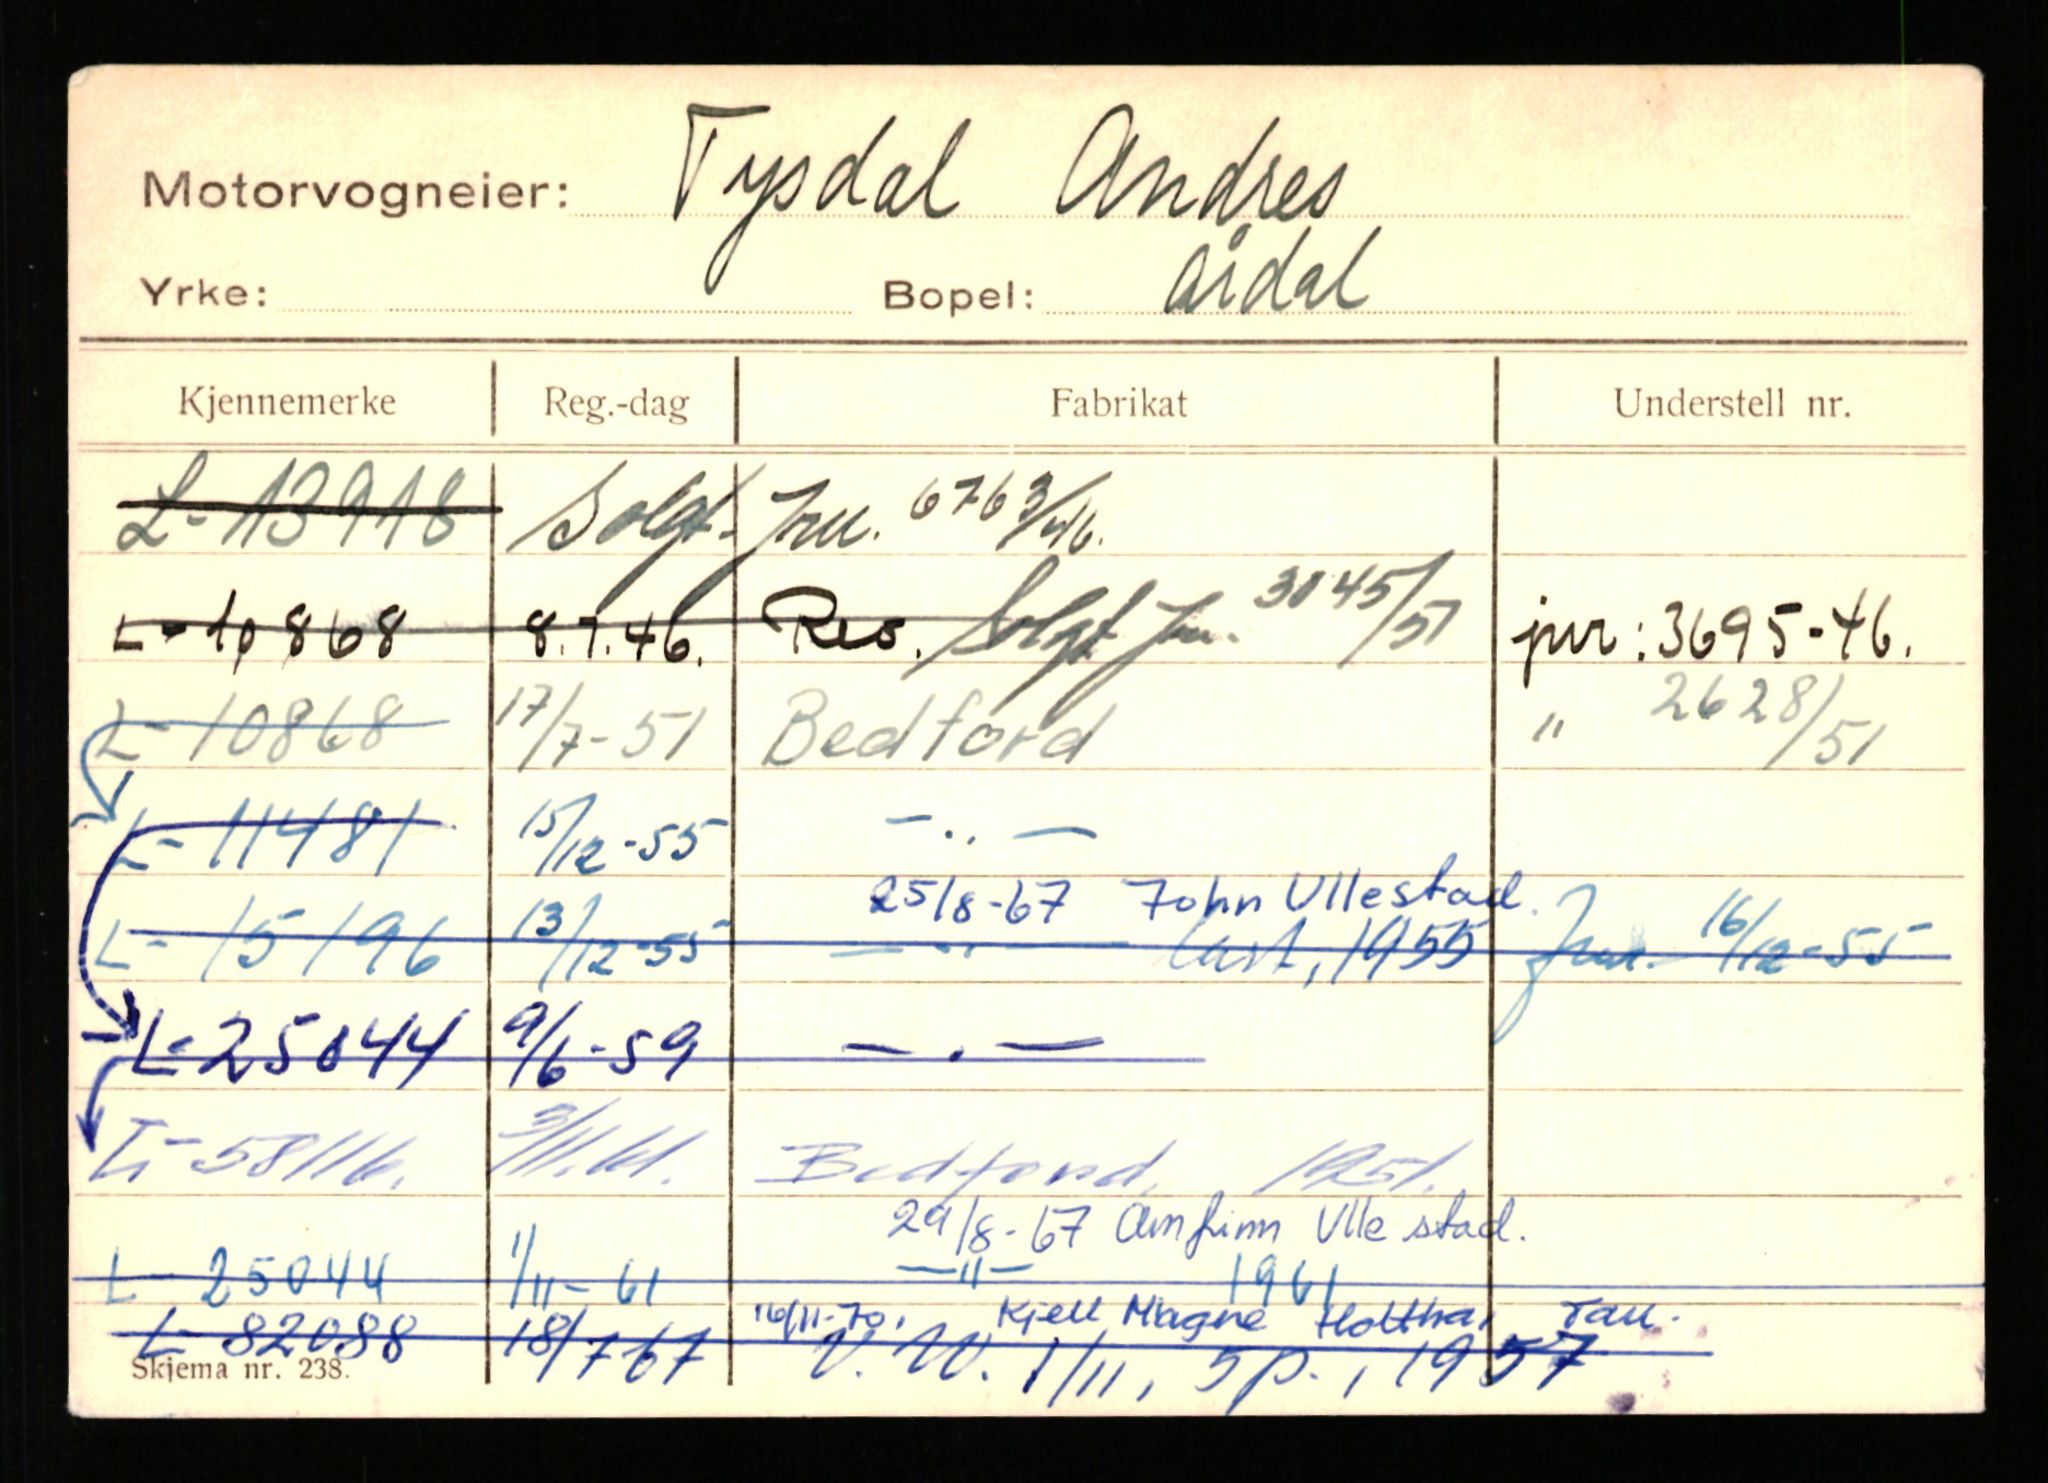 Motorvogneier: Tysdal Andres
Yrke: Bopel: Årdal
Kjennemerke Reg.-dag Fabrikat Understell nr.
L-13918 Solgt. Jru. 6763/46.
L-10868 8.7.46. Reo. Solgt Jru. 3045/51 jur: 3695-46.
L-10868 17/7-51 Bedford " 2628/51
L-11481 15/12-55 — .. —
25/8-67 John Ullestad.
L-15196 13/12-55 — .. — Last, 1955 Jur. 16/12-55
L-25044 9/6-59 — . —
L-58116. 3/11.61. Bedford, 1951.
29/8-67 Arnfinn Ullestad.
L- 25044 1/11-61 —"— 1961
16/11-70. Kjell Magne Tau.
L-82088 18/7 67 V. W. 1/11, 5p., 1957
Skjema nr. 238.